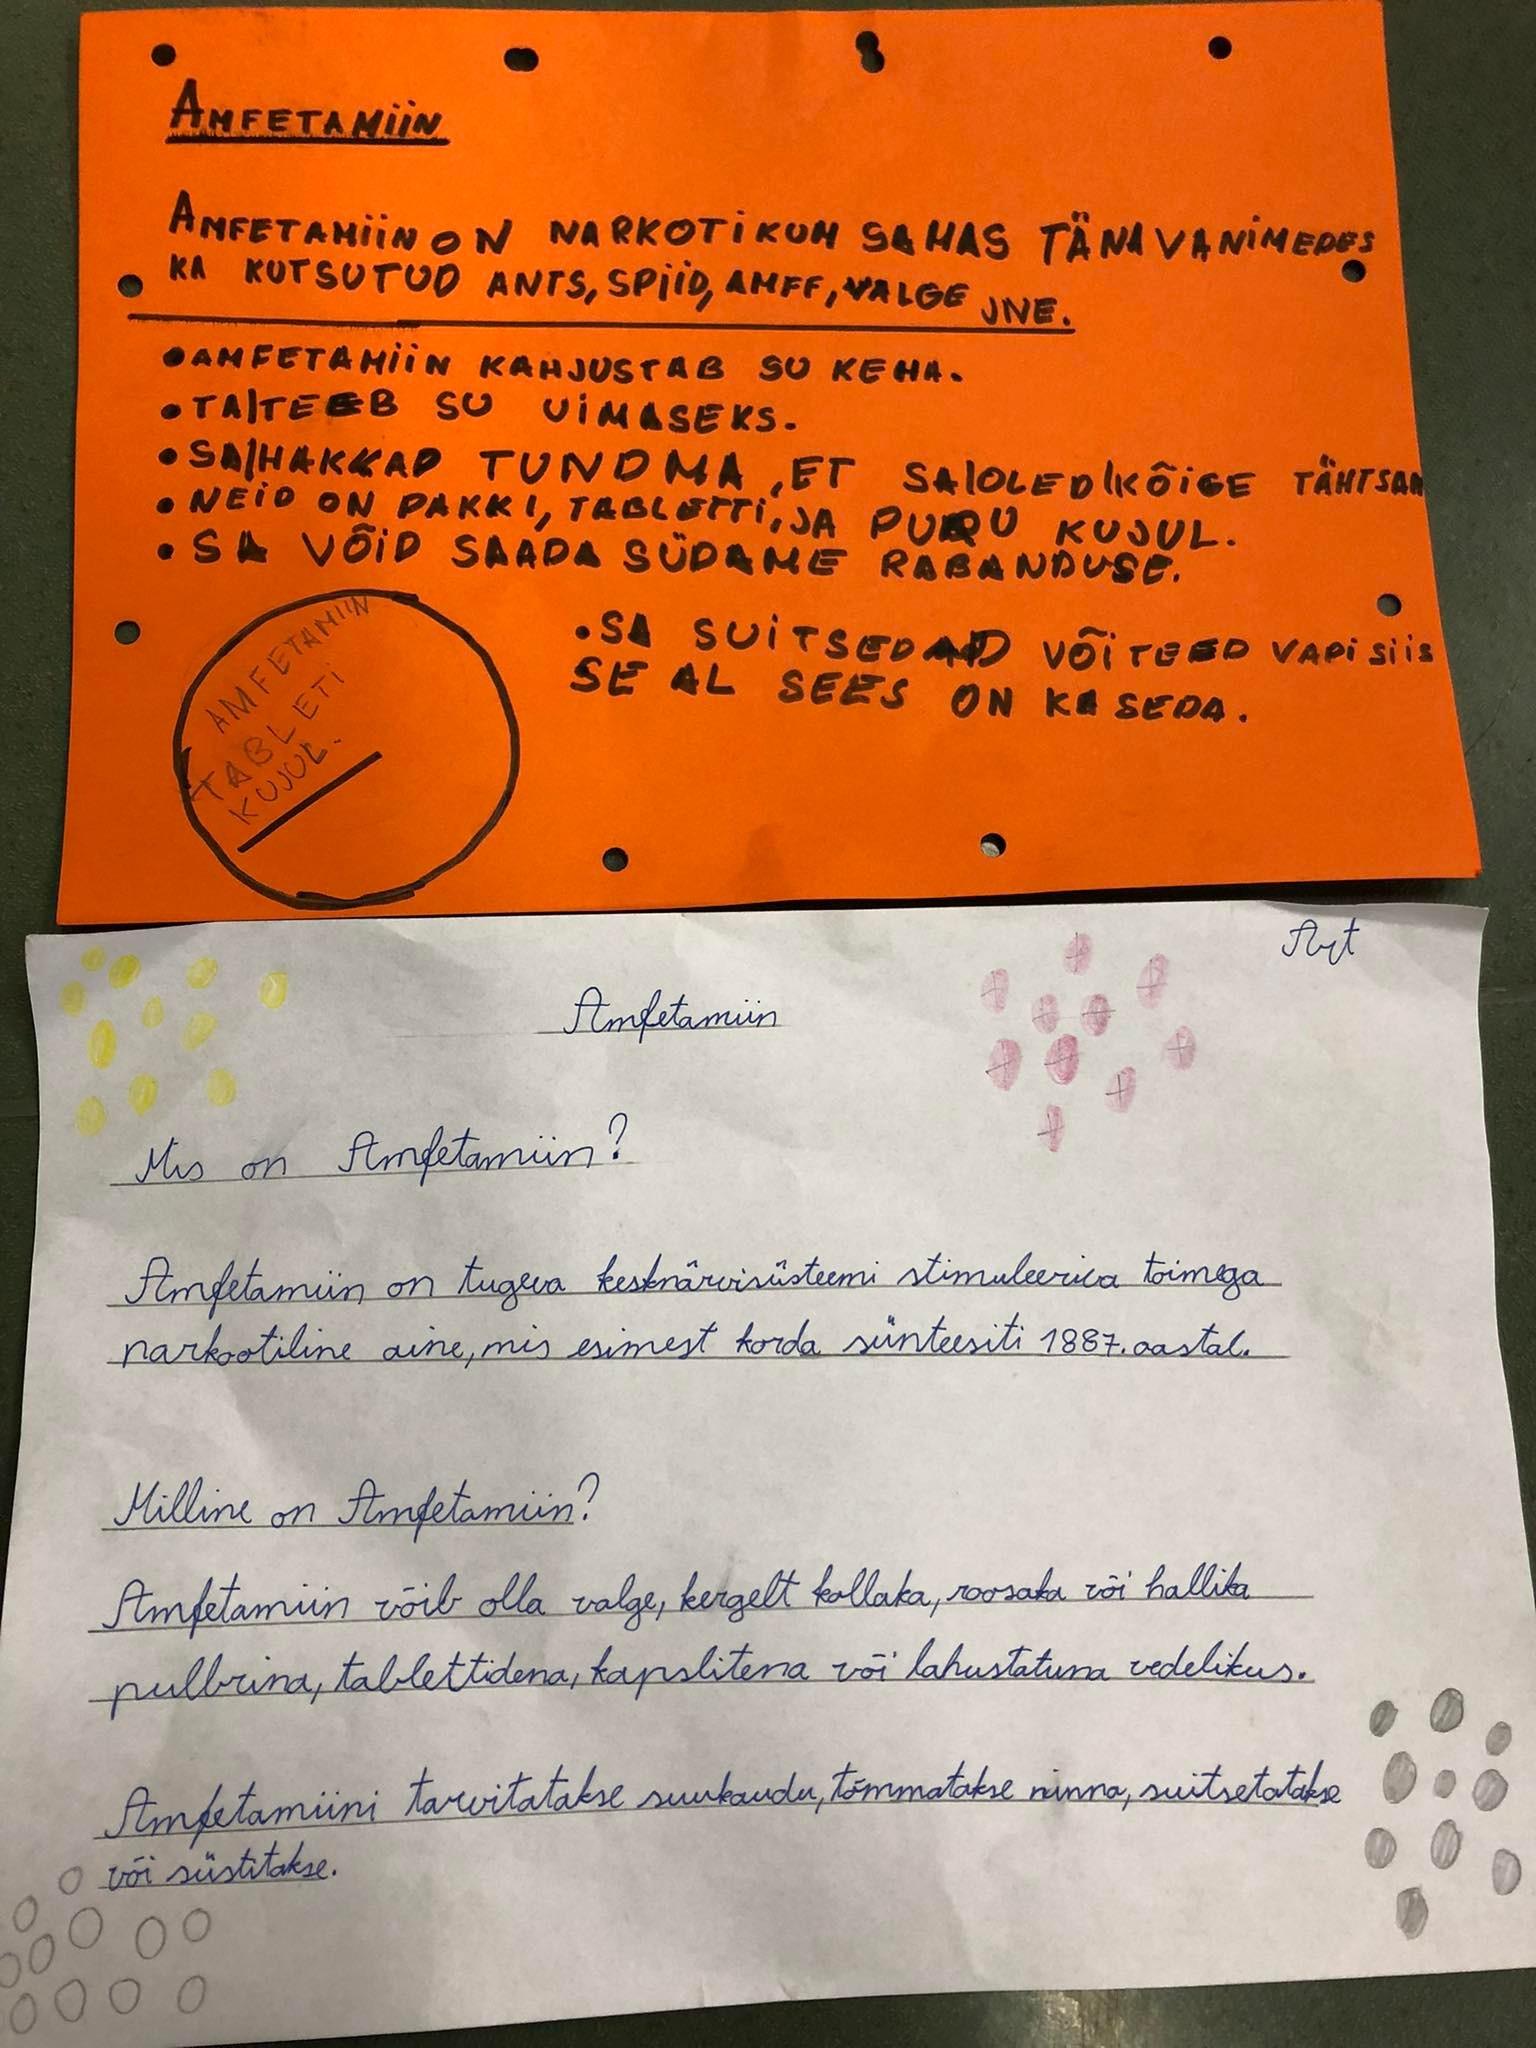 AMFETAMIIN
AMFETAMIIN ON NARKOTIKUM SAMAS TÄNAVANIMEDES
KA KUTSUTUD ANTS, SPIID, AMFF, VALGE JNE.
• AMFETAMIIN KAHJUSTAB SU KEHA.
• TA|TEEB SU UIMASEKS.
• SA|HAKKAD TUNDMA, ET SA|OLED|KÕIGE TÄHTSAM
• NEID ON PAKKI, TABLETTI, JA PURU KUJUL.
• SA VÕID SAADA SÜDAME RABANDUSE.
• SA SUITSEDAD VÕI TEED VAPI SIIS
SEAL SEES ON KA SEDA.
AMFETAMIIN
TABLETI
KUJUL.
Amfetamiin
Mis on Amfetamiin?
Amfetamiin on tugeva kesknärvisüsteemi stimuleeriva toimega
narkootiline aine, mis esimest korda sünteesiti 1887. aastal.
Milline on Amfetamiin?
Amfetamiin võib olla valge, kergelt kollaka, roosaka või hallika
pulbrina, tablettidena, kapslitena või lahustatuna vedelikus.
Amfetamiini tarvitatakse suukaudu, tõmmatakse ninna, suitsetatakse
või süstitakse.